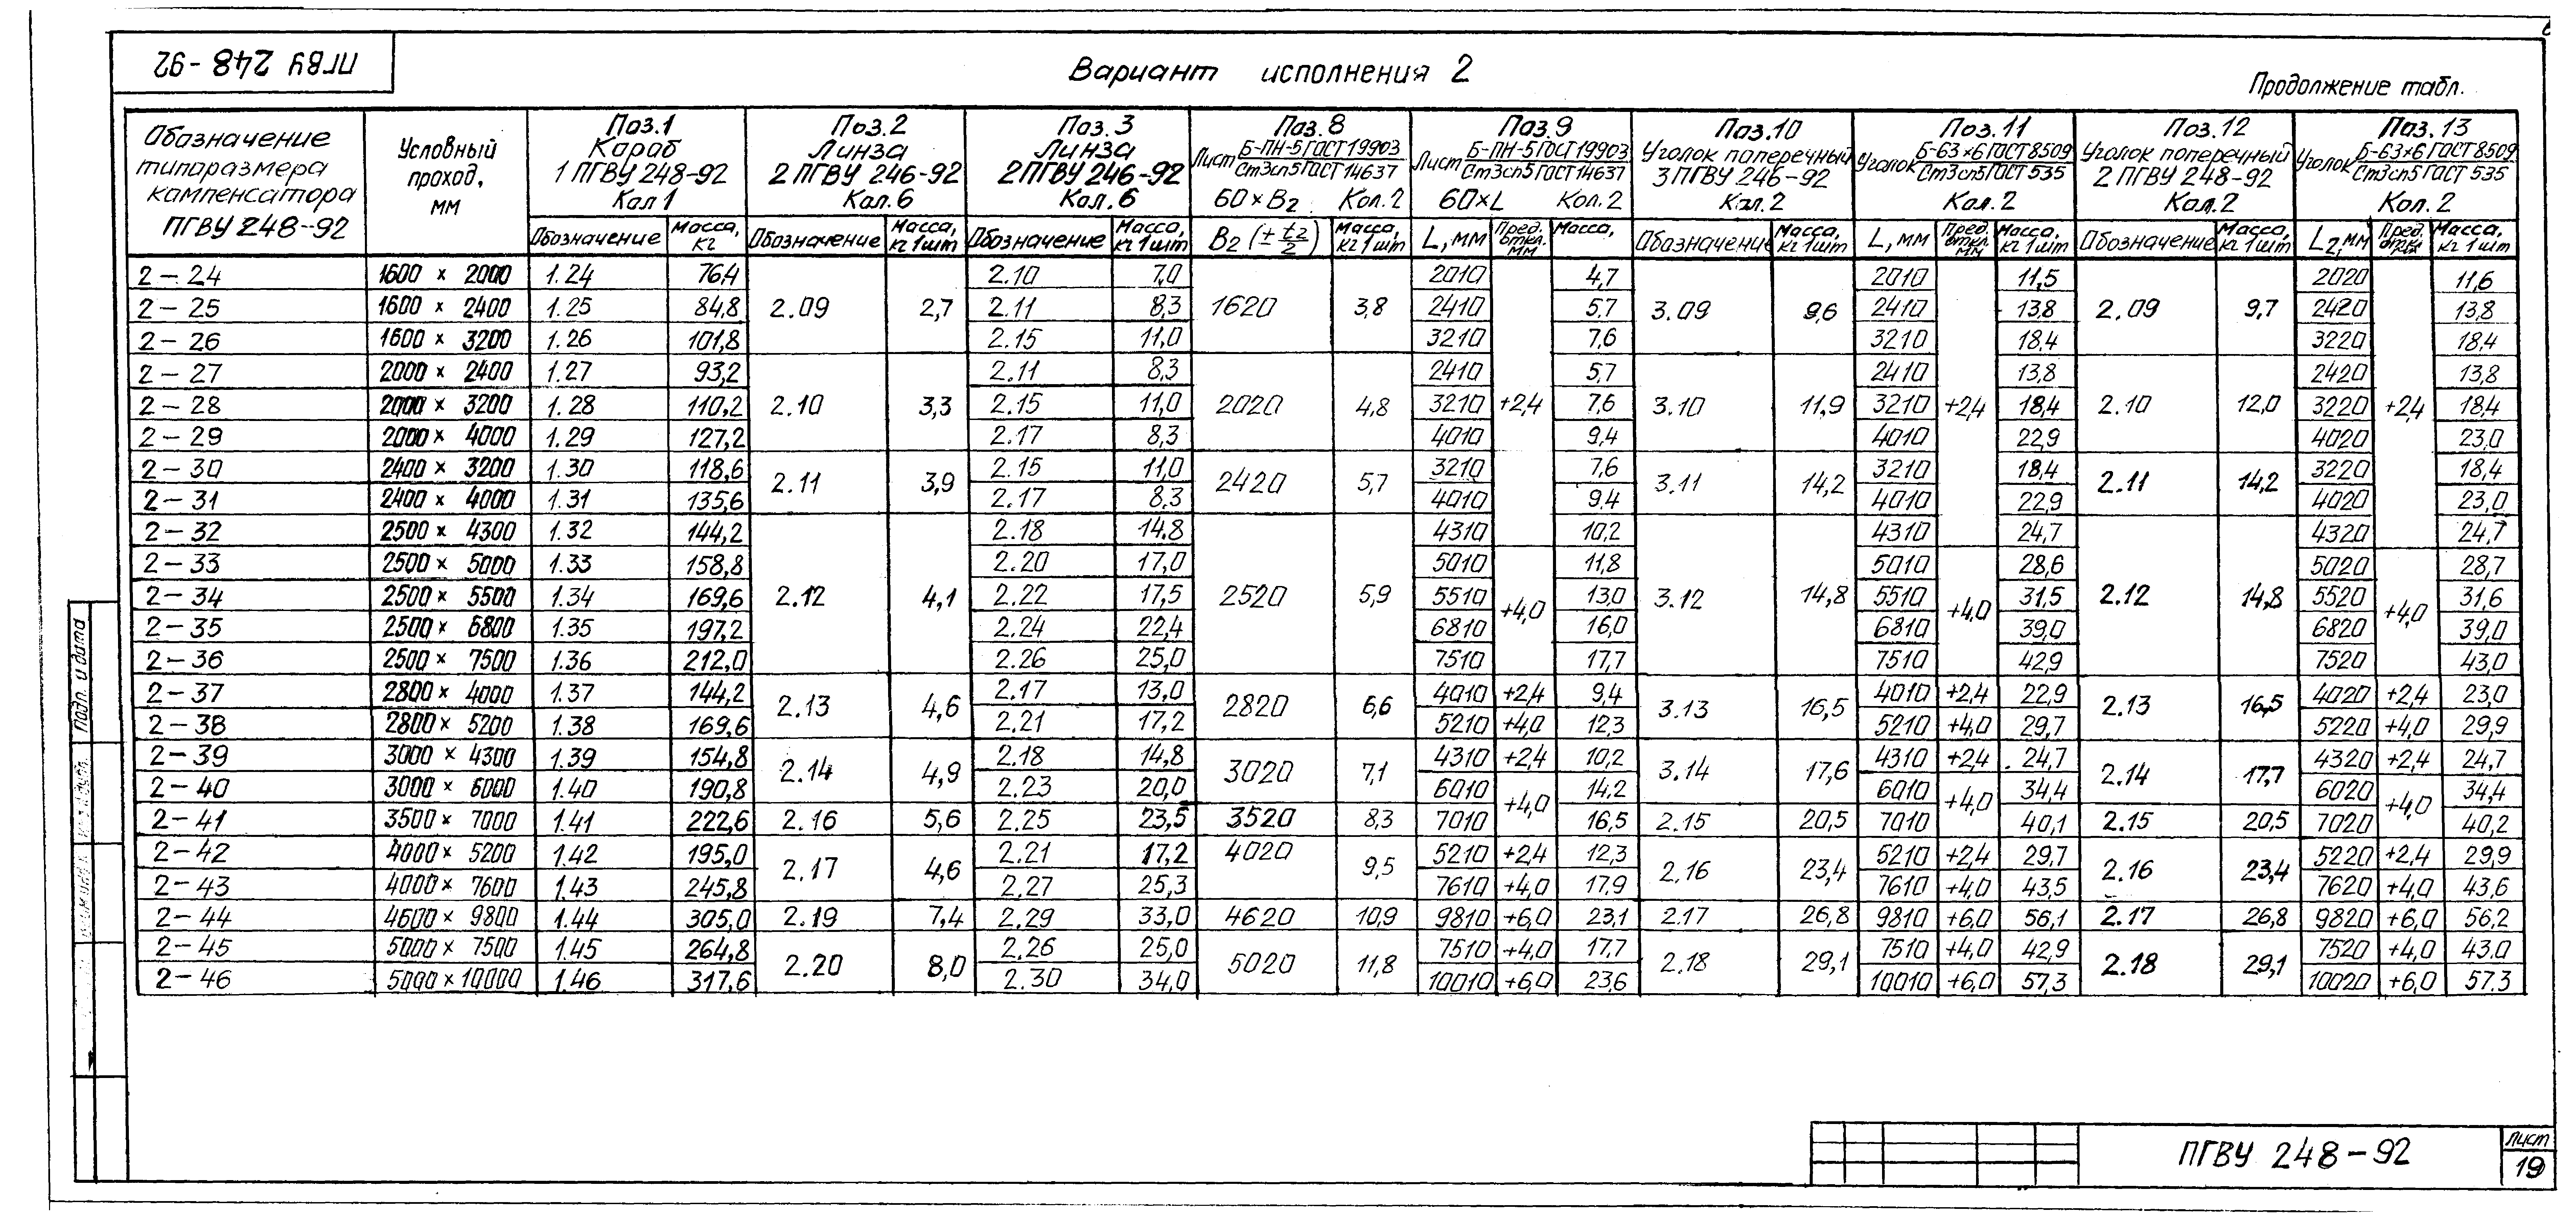 ПГВУ 248-92
Вариант исполнения 2
Продолжение табл.
Обозначение типоразмера компенсатора ПГВУ 248-92 | Условный проход, мм | Поз.1 Короб 1 ПГВУ 248-92 Кол 1 | Поз.2 Линза 2 ПГВУ 246-92 Кол. 6 | Поз. 3 Линза 2 ПГВУ 246-92 Кол. 6 | Поз. 8 Лист Б-ПН-5 ГОСТ 19903 / Ст3сп5 ГОСТ 14637 60×B2 Кол. 2 | Поз. 9 Лист Б-ПН-5 ГОСТ 19903 / Ст3сп5 ГОСТ 14637 60×L Кол. 2 | Поз. 10 Уголок поперечный 3 ПГВУ 246-92 Кол. 2 | Поз. 11 Уголок Б-63×6 ГОСТ 8509 / Ст3сп5 ГОСТ 535 Кол. 2 | Поз. 12 Уголок поперечный 2 ПГВУ 248-92 Кол. 2 | Поз. 13 Уголок Б-63×6 ГОСТ 8509 / Ст3сп5 ГОСТ 535 Кол. 2
Обозначение | Масса, кг | Обозначение | Масса, кг 1шт | Обозначение | Масса, кг 1шт | B2 (± t2/2) | Масса, кг 1шт | L, мм | Пред. откл. мм | Масса, | Обозначение | Масса, кг 1шт | L, мм | Пред. откл. мм | Масса, кг 1шт | Обозначение | Масса, кг 1шт | L2, мм | Пред. откл. мм | Масса, кг 1шт
2-24 1600 × 2000 1.24 76,4 2.10 7,0 2010 4,7 2010 11,5 2020 11,6
2-25 1600 × 2400 1.25 84,8 2.09 2,7 2.11 8,3 1620 3,8 2410 5,7 3.09 9,6 2410 13,8 2.09 9,7 2420 13,8
2-26 1600 × 3200 1.26 101,8 2.15 11,0 3210 7,6 3210 18,4 3220 18,4
2-27 2000 × 2400 1.27 93,2 2.11 8,3 2410 5,7 2410 13,8 2420 13,8
2-28 2000 × 3200 1.28 110,2 2.10 3,3 2.15 11,0 2020 4,8 3210 +2,4 7,6 3.10 11,9 3210 +2,4 18,4 2.10 12,0 3220 +2,4 18,4
2-29 2000 × 4000 1.29 127,2 2.17 8,3 4010 9,4 4010 22,9 4020 23,0
2-30 2400 × 3200 1.30 118,6 2.11 3,9 2.15 11,0 2420 5,7 3210 7,6 3.11 14,2 3210 18,4 2.11 14,2 3220 18,4
2-31 2400 × 4000 1.31 135,6 2.17 8,3 4010 9,4 4010 22,9 4020 23,0
2-32 2500 × 4300 1.32 144,2 2.18 14,8 4310 10,2 4310 24,7 4320 24,7
2-33 2500 × 5000 1.33 158,8 2.20 17,0 5010 11,8 5010 28,6 5020 28,7
2-34 2500 × 5500 1.34 169,6 2.12 4,1 2.22 17,5 2520 5,9 5510 +4,0 13,0 3.12 14,8 5510 +4,0 31,5 2.12 14,8 5520 +4,0 31,6
2-35 2500 × 6800 1.35 197,2 2.24 22,4 6810 16,0 6810 39,0 6820 39,0
2-36 2500 × 7500 1.36 212,0 2.26 25,0 7510 17,7 7510 42,9 7520 43,0
2-37 2800 × 4000 1.37 144,2 2.13 4,6 2.17 13,0 2820 6,6 4010 +2,4 9,4 3.13 16,5 4010 +2,4 22,9 2.13 16,5 4020 +2,4 23,0
2-38 2800 × 5200 1.38 169,6 2.21 17,2 5210 +4,0 12,3 5210 +4,0 29,7 5220 +4,0 29,9
2-39 3000 × 4300 1.39 154,8 2.14 4,9 2.18 14,8 3020 7,1 4310 +2,4 10,2 3.14 17,6 4310 +2,4 24,7 2.14 17,7 4320 +2,4 24,7
2-40 3000 × 6000 1.40 190,8 2.23 20,0 6010 +4,0 14,2 6010 +4,0 34,4 6020 +4,0 34,4
2-41 3500 × 7000 1.41 222,6 2.16 5,6 2.25 23,5 3520 8,3 7010 16,5 2.15 20,5 7010 40,1 2.15 20,5 7020 40,2
2-42 4000 × 5200 1.42 195,0 2.17 4,6 2.21 17,2 4020 9,5 5210 +2,4 12,3 2.16 23,4 5210 +2,4 29,7 2.16 23,4 5220 +2,4 29,9
2-43 4000 × 7600 1.43 245,8 2.27 25,3 7610 +4,0 17,9 7610 +4,0 43,5 7620 +4,0 43,6
2-44 4600 × 9800 1.44 305,0 2.19 7,4 2.29 33,0 4620 10,9 9810 +6,0 23,1 2.17 26,8 9810 +6,0 56,1 2.17 26,8 9820 +6,0 56,2
2-45 5000 × 7500 1.45 264,8 2.20 8,0 2.26 25,0 5020 11,8 7510 +4,0 17,7 2.18 29,1 7510 +4,0 42,9 2.18 29,1 7520 +4,0 43,0
2-46 5000 × 10000 1.46 317,6 2.30 34,0 10010 +6,0 23,6 10010 +6,0 57,3 10020 +6,0 57,3
Подп. и дата
ПГВУ 248-92
Лист
19